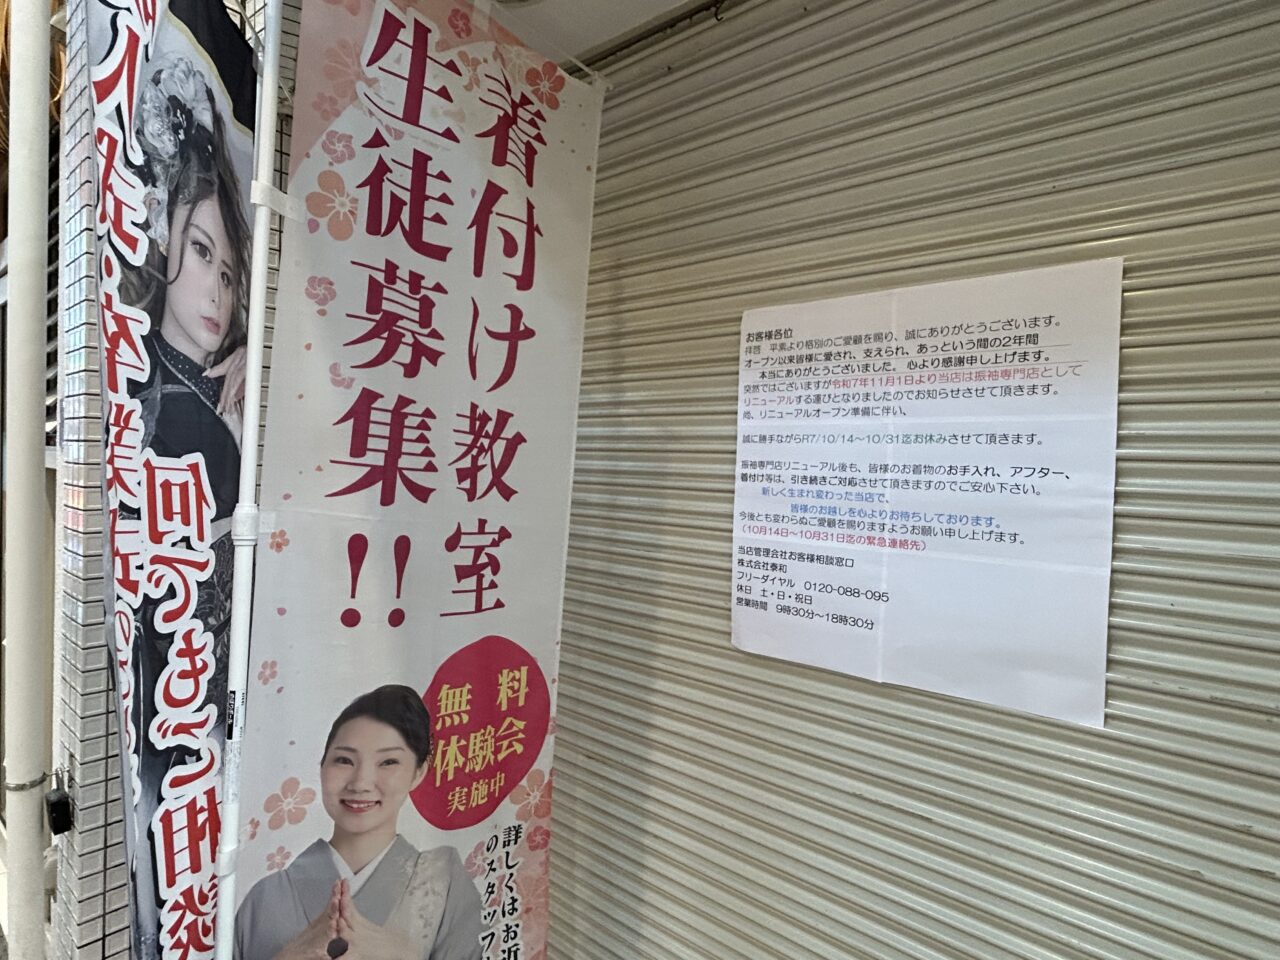 着付け教室
生徒募集!!
無料
体験会
実施中
詳しくはお近
のスタッフ
何でもご相談
お客様各位
拝啓 平素より格別のご愛顧を賜り、誠にありがとうございます。
オープン以来皆様に愛され、支えられ、あっという間の2年間
本当にありがとうございました。心より感謝申し上げます。
突然ではございますが令和7年11月1日より当店は振袖専門店として
リニューアルする運びとなりましたのでお知らせさせて頂きます。
尚、リニューアルオープン準備に伴い、
誠に勝手ながらR7/10/14〜10/31迄お休みさせて頂きます。
振袖専門店リニューアル後も、皆様のお着物のお手入れ、アフター、
着付け等は、引き続きご対応させて頂きますのでご安心下さい。
新しく生まれ変わった当店で、
皆様のお越しを心よりお待ちしております。
今後とも変わらぬご愛顧を賜りますようお願い申し上げます。
（10月14日〜10月31日迄の緊急連絡先）
当店管理会社お客様相談窓口
株式会社泰和
フリーダイヤル 0120-088-095
休日 土・日・祝日
営業時間 9時30分〜18時30分